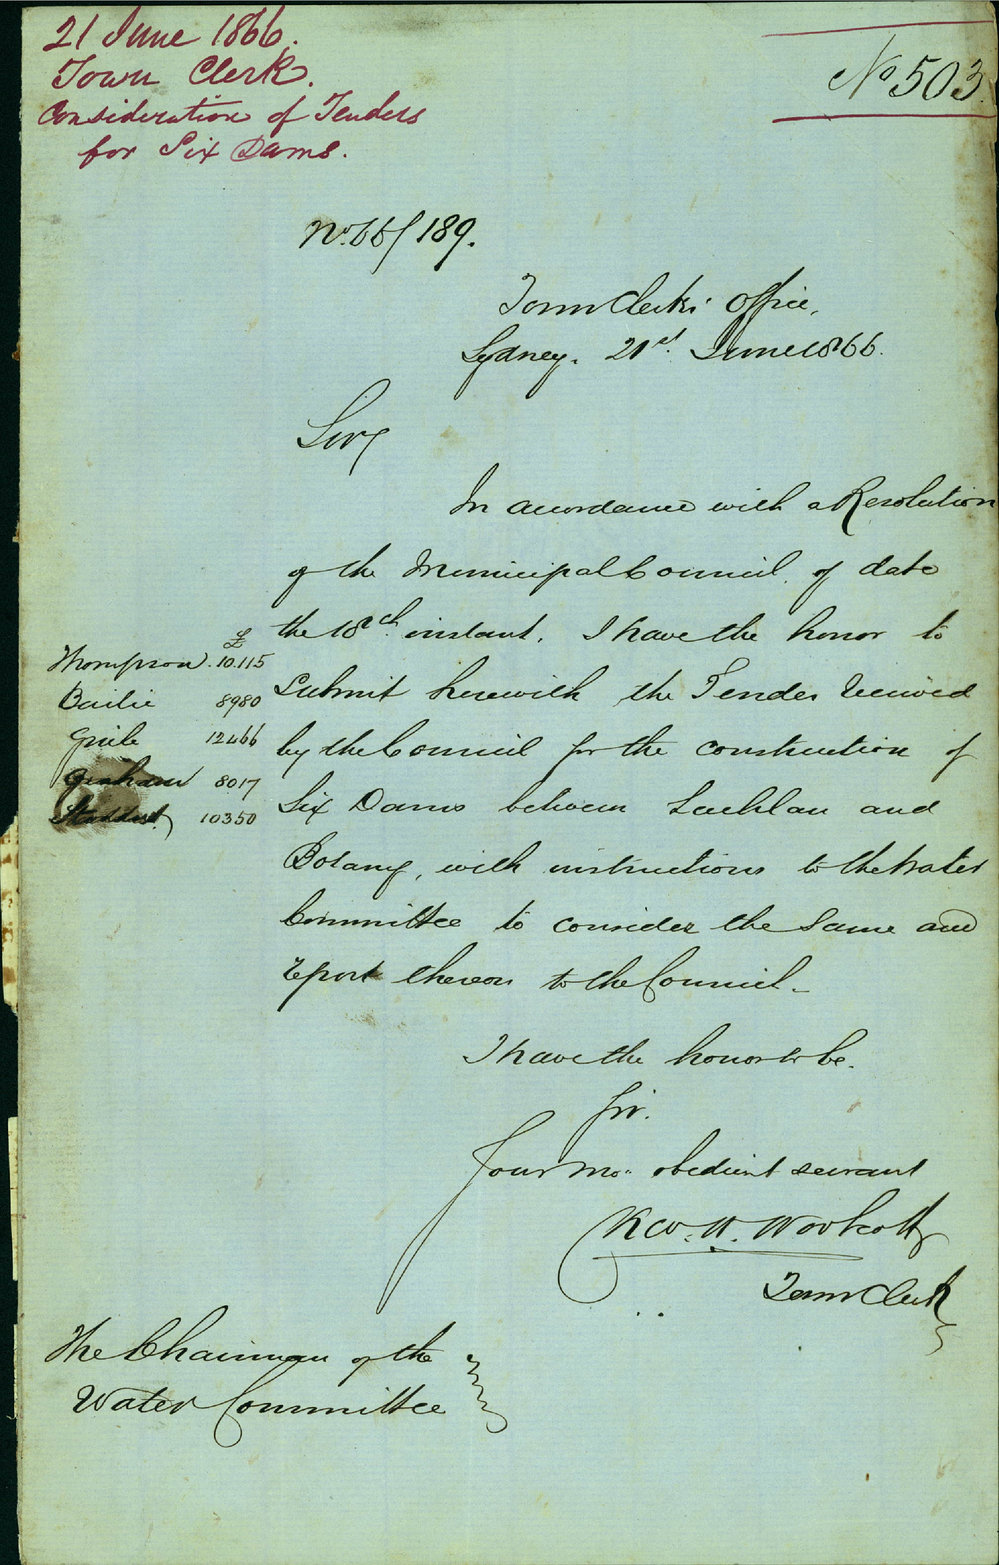 21 June 1866.
Town Clerk.
Consideration of Tenders
for Six Dams.
No 503.
No. 66/189.
Town Clerks' Office,
Sydney. 21st. June 1866.
Sir,
In accordance with a Resolution
of the Municipal Council, of date
the 18th. instant. I have the honor to
Submit herewith the Tenders received
by the Council for the construction of
Six Dams between Lachlan and
Botany, with instructions to the Water
Committee to consider the same and
report thereon to the Council.
£
Thompson. 10.115
Bailie 8980
12466
Graham 8017
10350
I have the honor to be.
Sir.
Your mo. obedient servant
Woolcott
Town Clerk
The Chairman of the
Water Committee